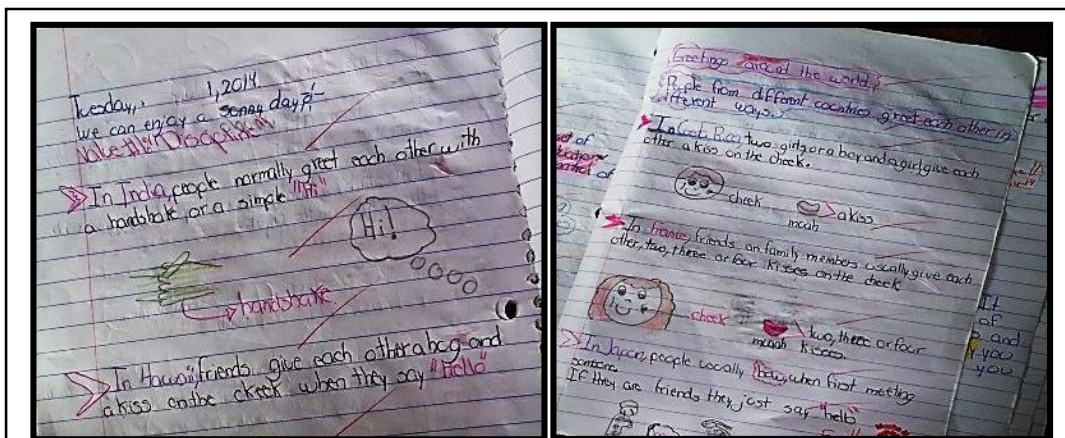 Tuesday, 1, 2014
We can enjoy a sunny day!
Value the: "Discipline"
In India, people normally greet each other with
a handshake or a simple "Hi"
Hi!
handshake
In Hawaii, friends give each other a hcg and
a kiss on the ckeek when they say "Hello"
Greetings around the world
People from different countries greet each other in
different ways.
In Costa Rica, two girls or a boy and a girl give each
other a kiss on the cheek.
cheek
muah
a kiss
In France, friends an family members usually give each
other, two, three or four kisses on the cheek
cheek
muaah
two, three or four
kisses.
In Japan, people usually bow, when first meeting
someone
If they are friends they just say "hello"
It
of
and
you
you